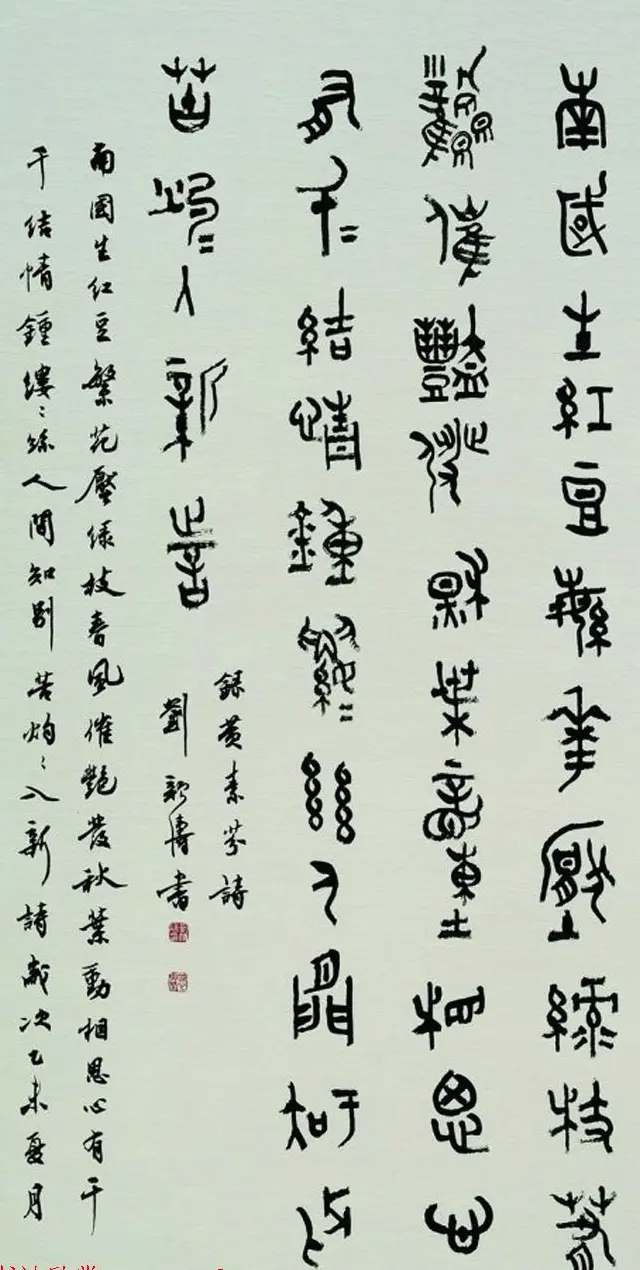 南國生紅豆繁花壓綠枝春
風催艷發秋葉動相思心
有千〻結情鍾縷〻絲人間知別
苦灼〻入新詩
錄黃素芬詩
劉顏濤書
南國生紅豆繁花壓綠枝春風催艷發秋葉動相思心有千
千結情鍾縷〻絲人間知別苦灼〻入新詩歲次乙未夏月